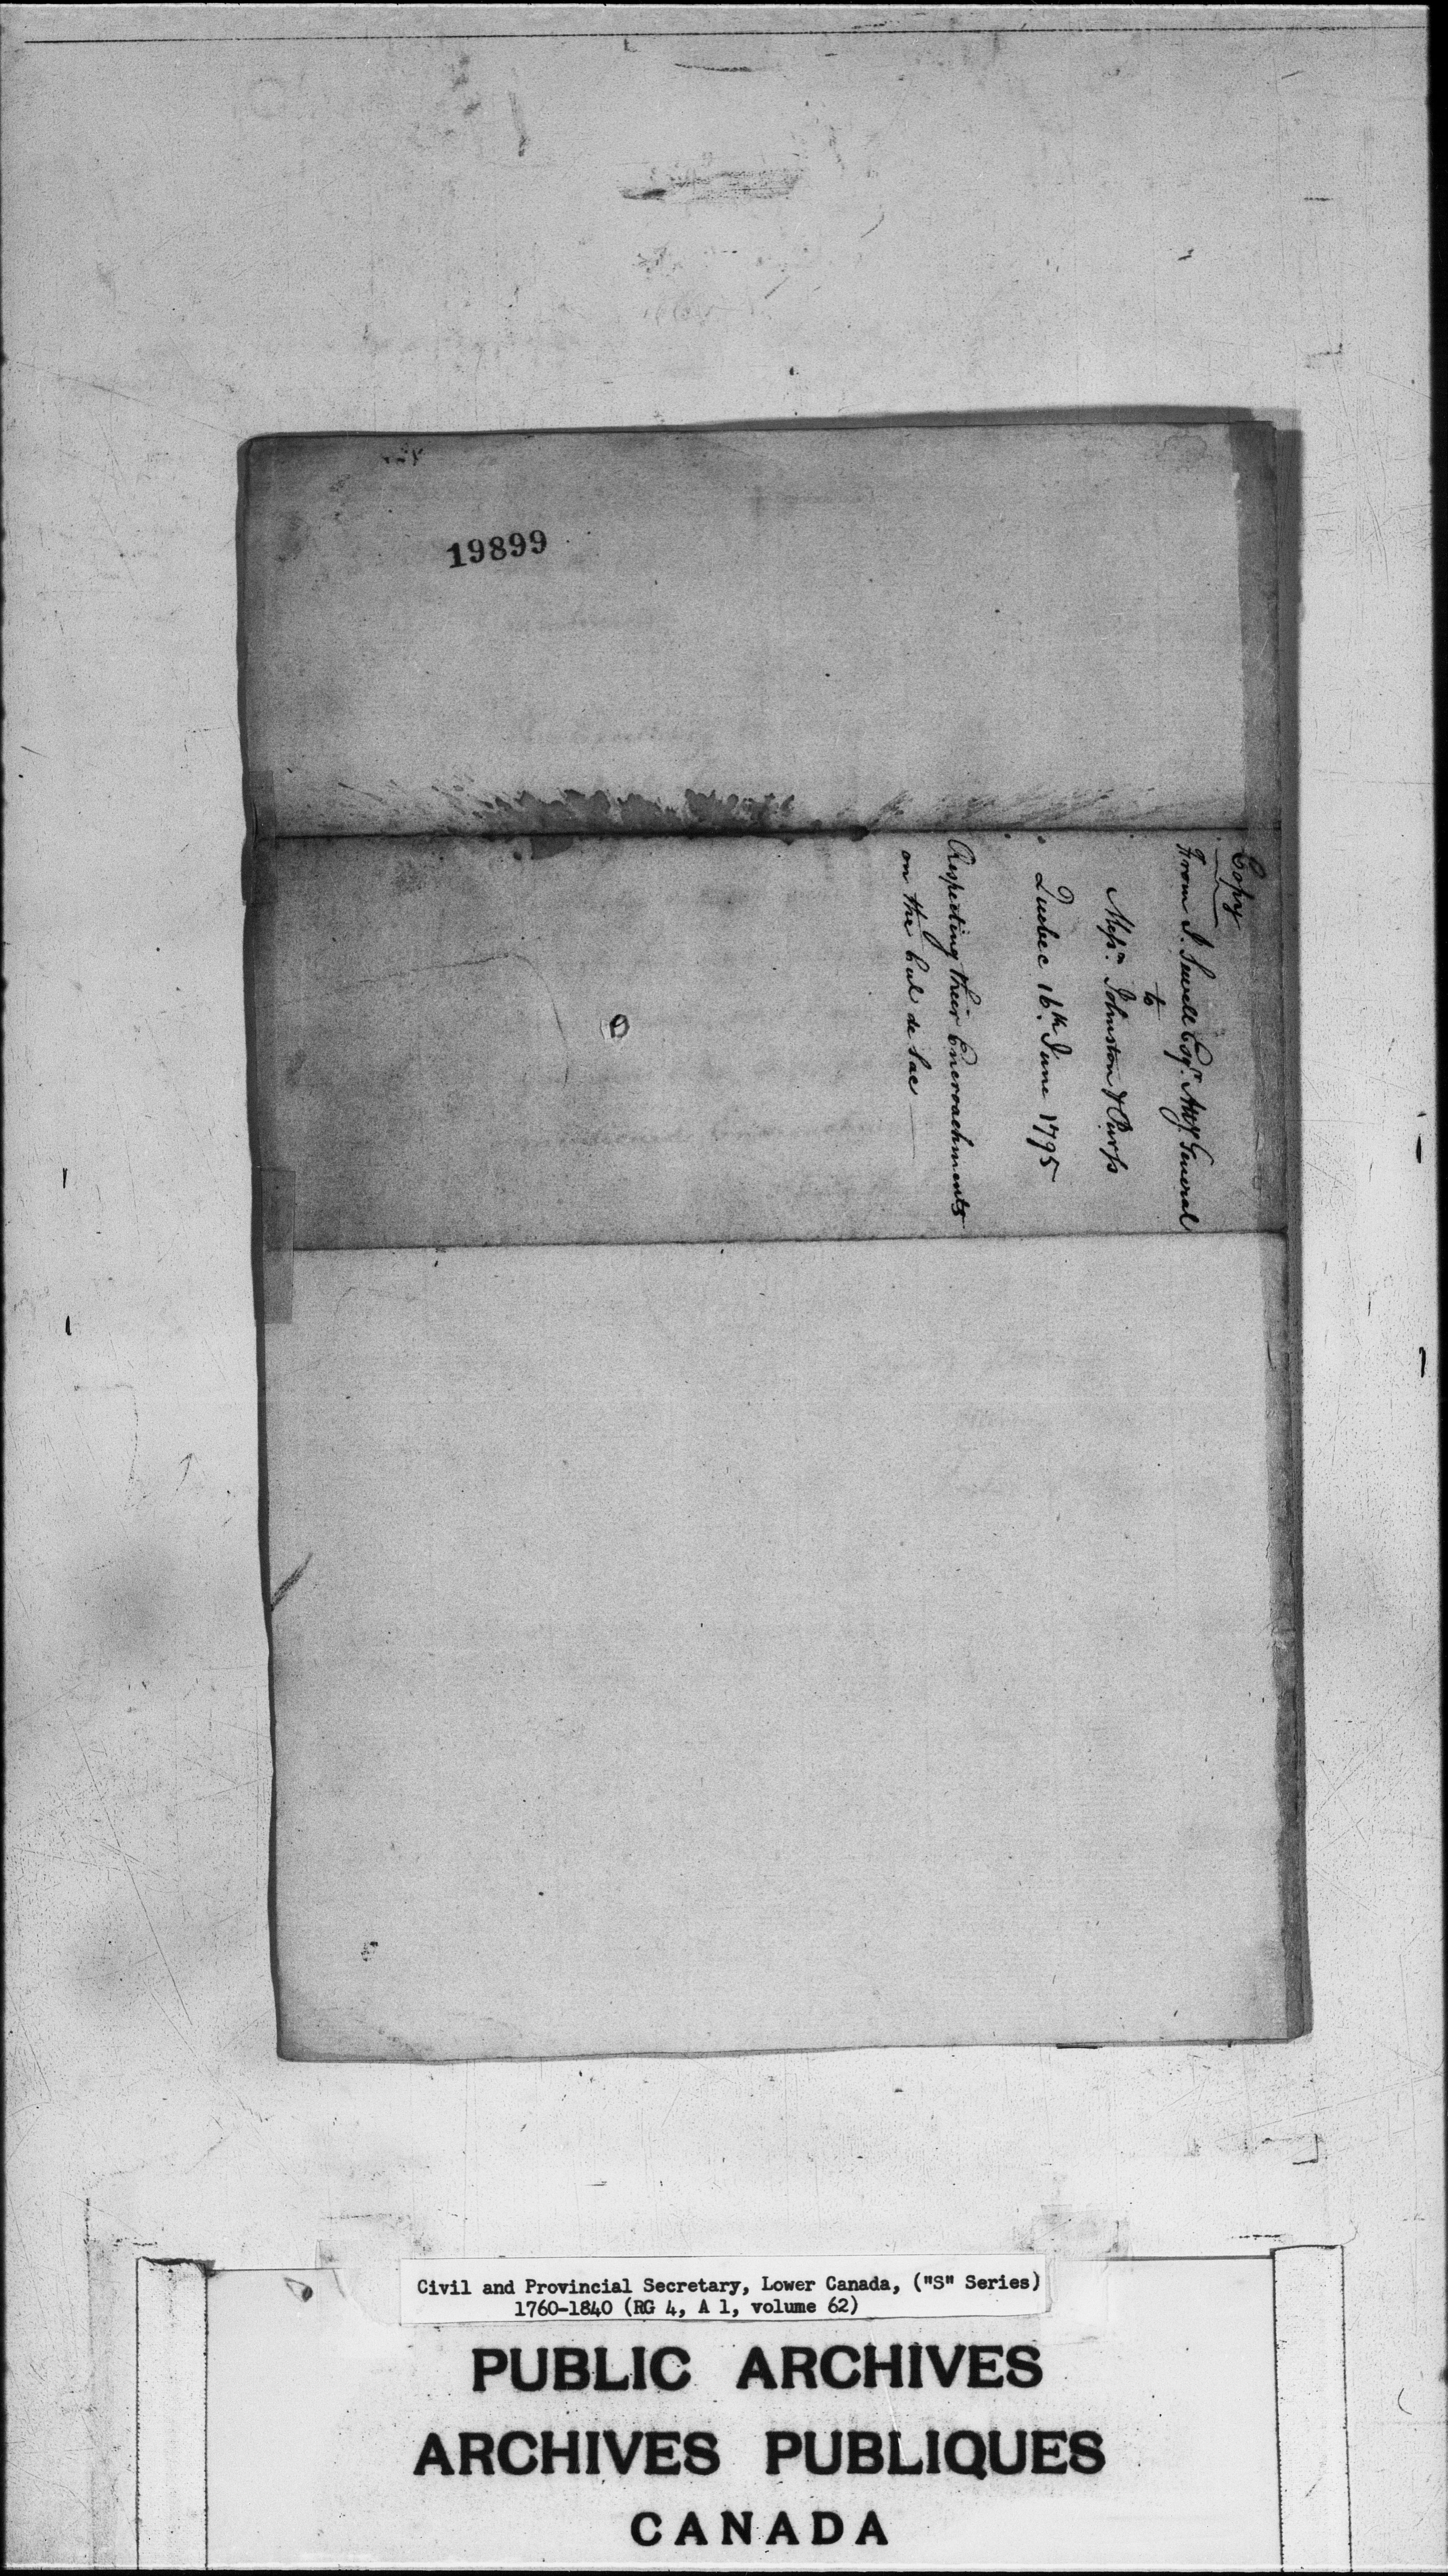 19899
Copy
From J. Sewell Esqr. Atty. General
to
Messrs. Johnston & Purss
Quebec 16th. June 1795
Respecting their Encroachments
on the Cul de Sac
Civil and Provincial Secretary, Lower Canada, ("S" Series)
1760-1840 (RG 4, A 1, volume 62)
PUBLIC ARCHIVES
ARCHIVES PUBLIQUES
CANADA